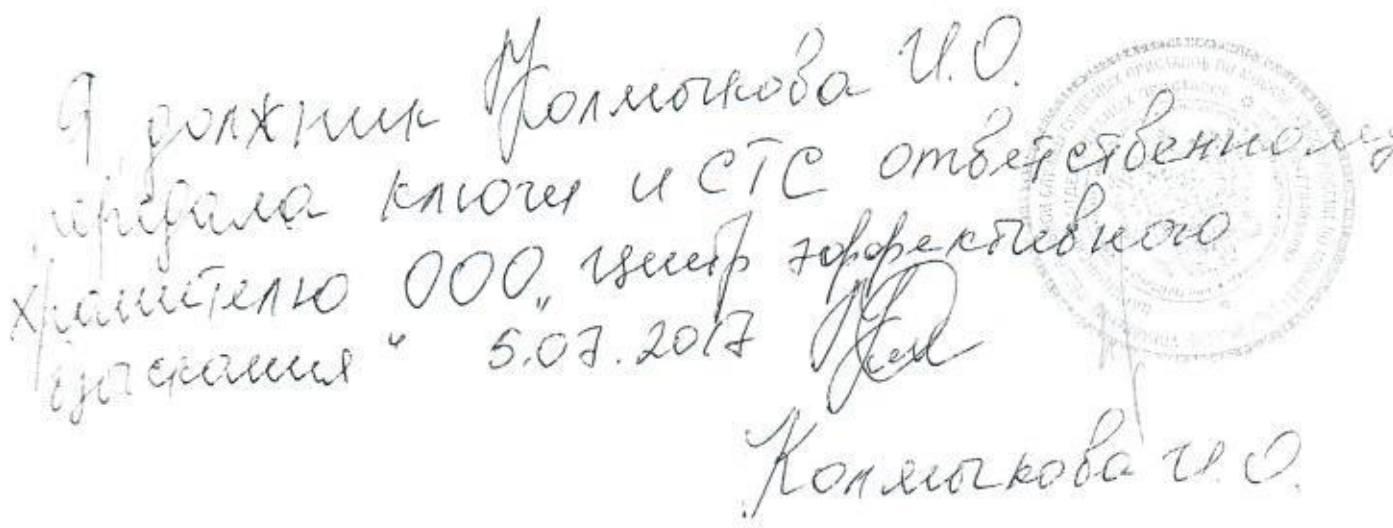 Я должник Колмычкова И.О.
передала ключи и СТС ответственному
хранителю ООО „Центр эффективного
взыскания“ 5.07.2017
Колмычкова И.О.